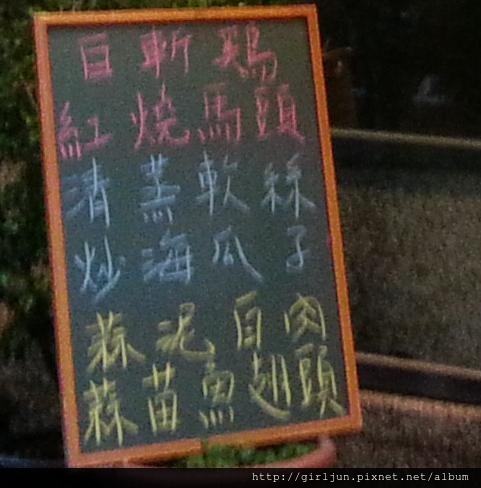 白斬鷄
紅燒馬頭
清蒸軟絲
炒海瓜子
蒜泥白肉
蒜苗魚翅頭
http://girljun.pixnet.net/album